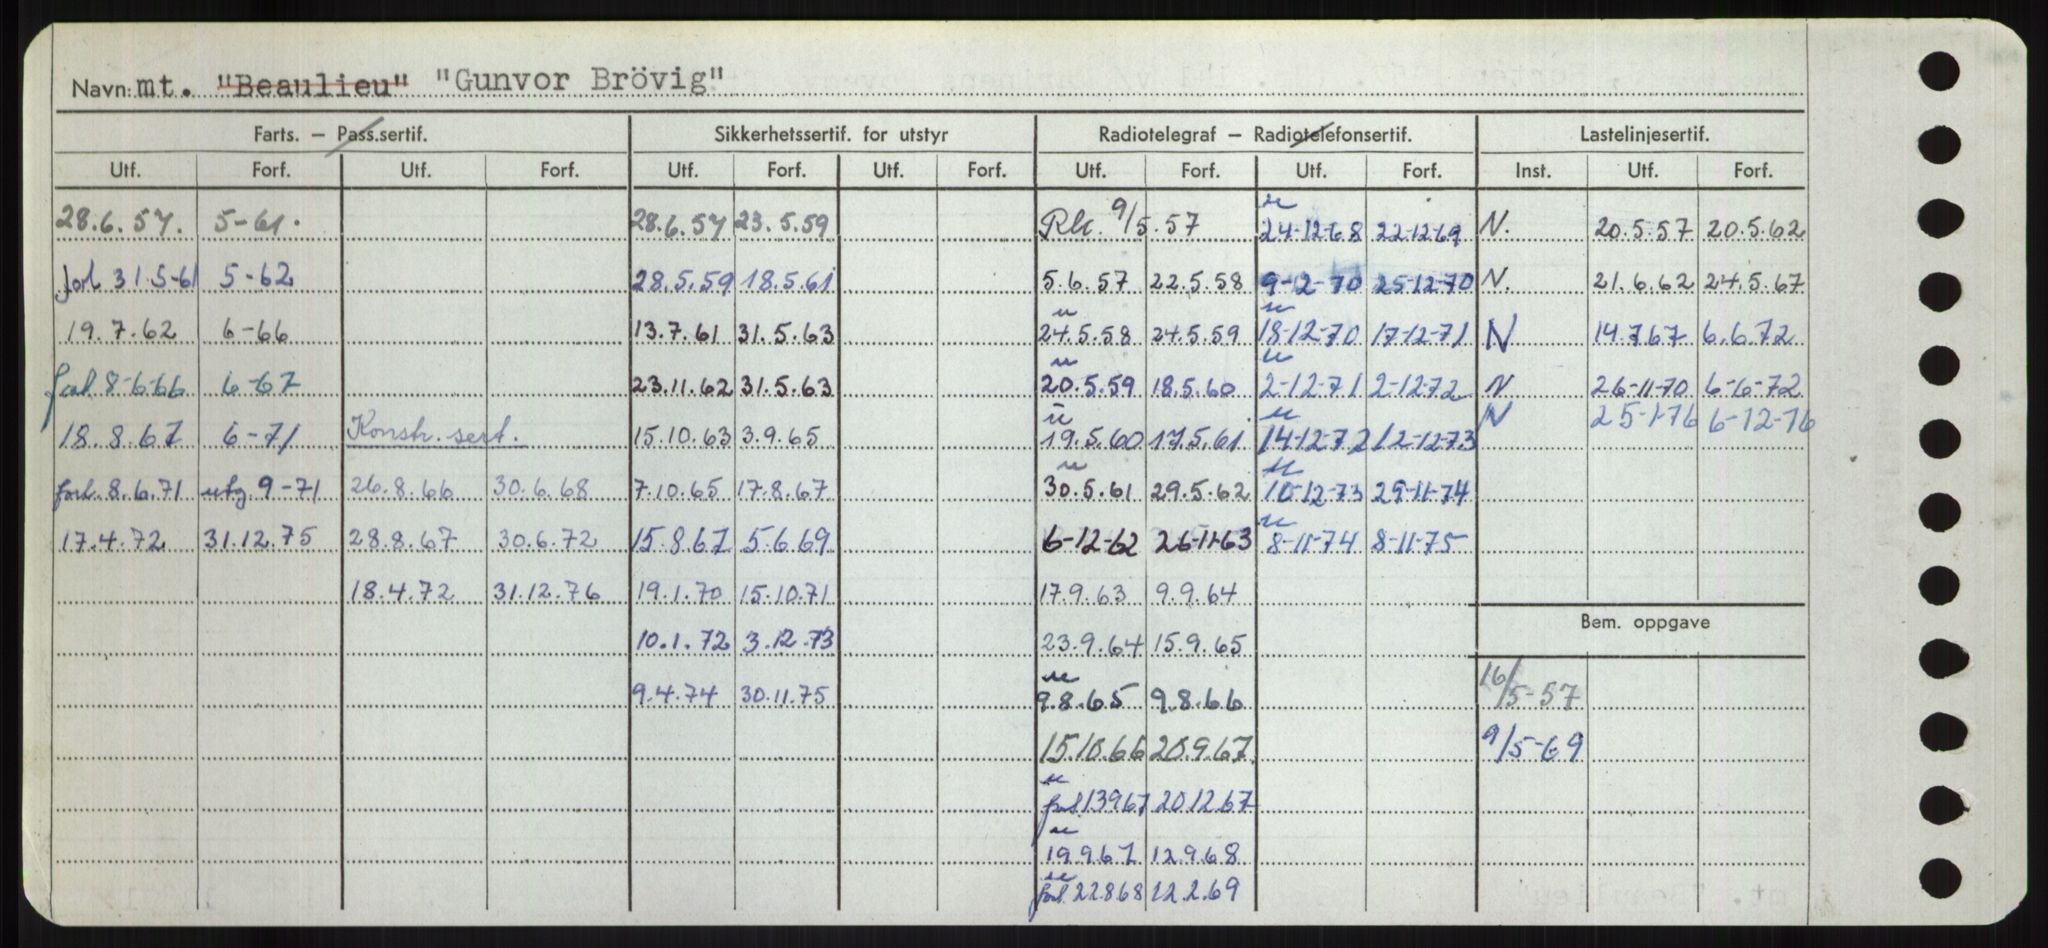 Navn: mt. "Beaulieu" "Gunvor Brövig"
Farts. — Pass.sertif. Sikkerhetssertif. for utstyr Radiotelegraf — Radiotelefonsertif. Lastelinjesertif.
Utf. Forf. Utf. Forf. Utf. Forf. Utf. Forf. Utf. Forf. Utf. Forf. Inst. Utf. Forf.
28.6.57. 5-61. 28.6.57 23.5.59 Rk. 9/5.57 24-12-68 22-12-69 N. 20.5.57 20.5.62
forl 31.5-61 5-62 28.5.59 18.5.61 5.6.57 22.5.58 9-12-70 25-12-70 N. 21.6.62 24.5.67
19.7.62 6-66 13.7.61 31.5.63 24.5.58 24.5.59 18-12-70 17-12-71 N 14.7.67 6.6.72
forl. 8-6-66 6-67 23.11.62 31.5.63 20.5.59 18.5.60 2-12-71 2-12-72 N 26-11-70 6-6-72
18.8.67 6-71 Konstr. sert. 15.10.63 3.9.65 19.5.60 17.5.61 14-12-72 12-12-73 N 25-1-76 6-12-76
forl. 8.6.71 utg. 9-71 26.8.66 30.6.68 7.10.65 17.8.67 30.5.61 29.5.62 10-12-73 29-11-74
17.4.72 31.12.75 28.8.67 30.6.72 15.8.67 5.6.69 6-12-62 26-11-63 8-11-74 8-11-75
18.4.72 31.12.76 19.1.70 15.10.71 17.9.63 9.9.64
Bem. oppgave
10.1.72 3.12.73 23.9.64 15.9.65
9.4.74 30.11.75 9.8.65 9.8.66 16/5-57
15.10.66 20.9.67 9/5-69
forl. 13967 20.12.67
19.9.67 12.9.68
forl. 22868 12.2.69